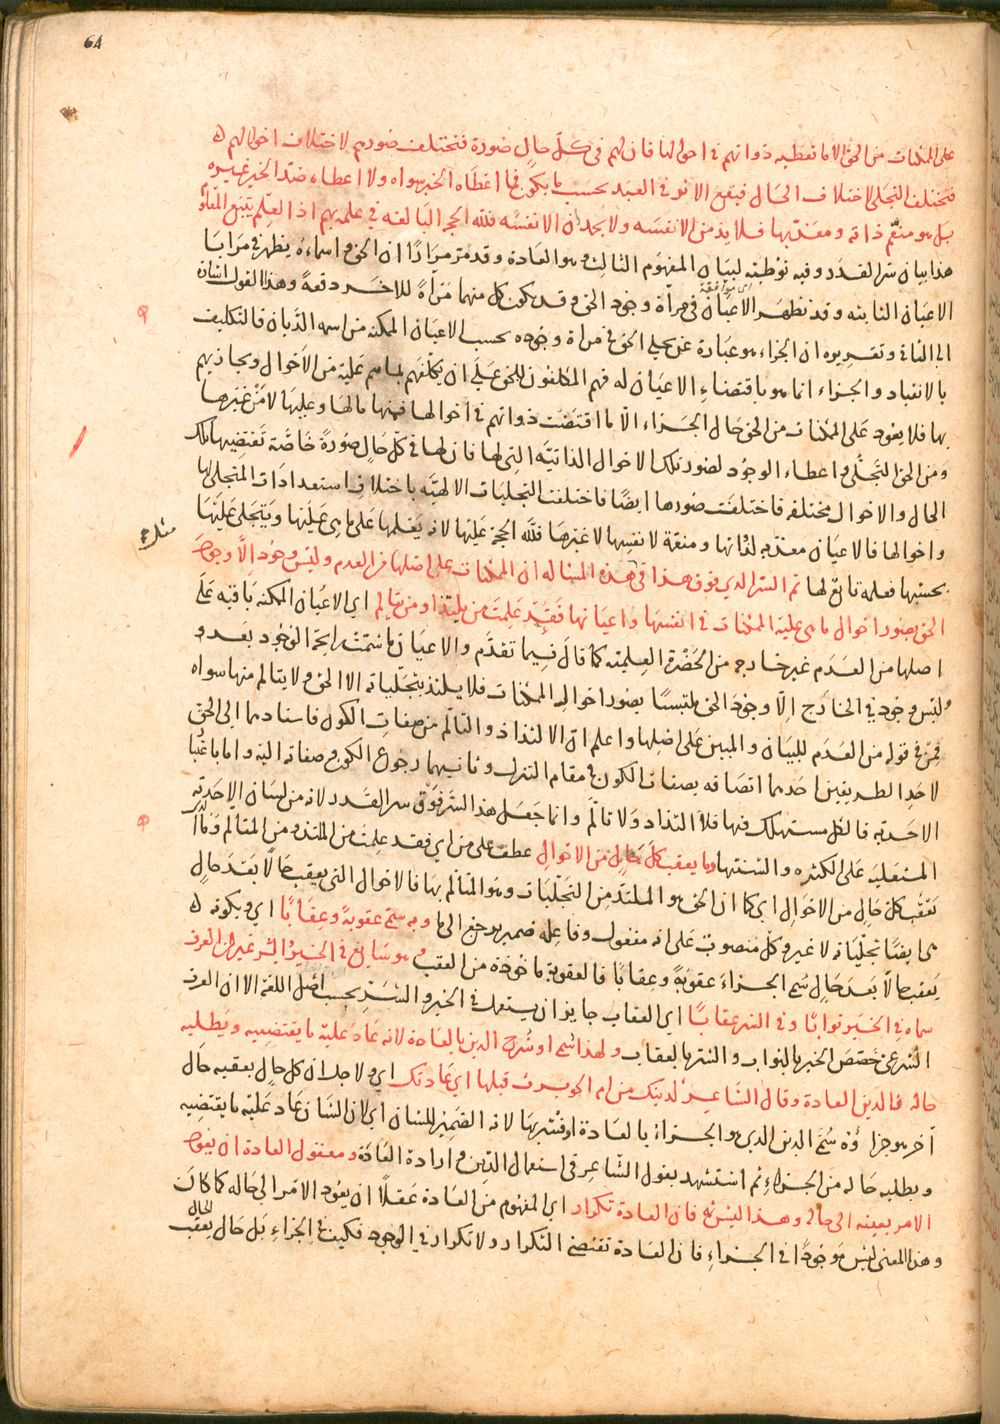 64
على الممكنات من الحق الا ما تعطيه ذواتهم في احوالها فان لهم في كل حال صورة فتختلف صورهم لاختلاف احوالهم
فيختلف التجلي لاختلاف الحال فيقع الاثر في العبد بحسب ما يكون فما اعطاه الخير سواه ولا اعطاه ضد الخير غيره
بل هو منعم ذاته ومعذبها فلا يذمن الا نفسه ولا يحمدن الا نفسه فلله الحجة البالغة في علمه بهم اذ العلم يتبع المعلوم
هذا بيان سر القدر وفيه توطئة لبيان المفهوم الثالث وهو العادة وقد مر مرارا ان الحق واسماءه يظهر في مرايا
الاعيان الثابتة وقد تظهر الاعيان في مرآة وجود الحق وقد يكون كل منهما مرآة للاخر دفعة وهذا القول اشارة
الى الثاني وتقريره ان الجزاء هو عبارة عن تجلي الحق في مرآة وجوده بحسب الاعيان الممكنة من اسمه الديان فالتكليف
بالانقياد والجزاء انما هو باقتضاء الاعيان له فهم المكلفون للحق على ان يكلفهم بما هم عليه من الاحوال ويجازيهم
بها فلا يعود على الممكنات من الحق حال الجزاء الا ما اقتضت ذواتهم في احوالها فمنها ما لها وعليها لا من غيرها
ومن الحق التجلي واعطاء الوجود لصور تلك الاحوال الذاتية التي لها فان لها في كل حال صورة خاصة تقتضيها تلك
الحال والاحوال مختلفة فاختلفت صورها ايضا فاختلفت التجليات الالهية باختلاف استعدادات المتجلى لها
واحوالها فالاعيان معذبة لذاتها ومنعمة لانفسها لا غيرها فلله الحجة عليها لانه يعلمها على ما هي عليها ويتجلى عليها
بحسبها فعلمه تابع لها ثم السر الذي فوق هذا في هذه المسألة ان الممكنات على اصلها من العدم وليس وجود الا وجود
الحق بصور احوال ما هي عليه الممكنات في انفسها واعيانها فقد علمت من يلتذ ومن يتألم اي الاعيان الممكنة باقية على
اصلها من العدم غير خارجة من الحضرة العلمية كما قال فيما تقدم والاعيان ما شمت رائحة الوجود بعد و
وليس وجود في الخارج الا وجود الحق ملتبسا بصور احوال الممكنات فلا يلتذ بتجلياته الا الحق ولا يتألم منها سواه
فمن في قوله من العدم للبيان والمبين على اصلها واعلم ان الالتذاذ والتألم من صفات الكون فاسنادهما الى الحق
لاحد الطريقين احدهما اتصافه بصفات الكون في مقام التنزل وثانيهما رجوع الكون وصفاته اليه واما باعتبار
الاحدية فالكل مستهلك فيها فلا التذاذ ولا تألم وانما جعل هذا السر فوق سر القدر لانه من لسان الاحدية
المستعلية على الكثرة والسنتها وما يعقب كل حال من الاحوال عطف على من اي فقد علمت من الملتذ ومن المتألم وما
تعقب كل حال من الاحوال اي كما ان الحق هو الملتذ من التجليات وهو المتألم بها فالاحوال التي يعقب حالا بعد حال
هي ايضا تجلياته لا غير وكل منصوب على انه مفعول وفاعله ضمير يرجع الى ما وبه سمى عقوبة وعقابا اي وبكونه
يعقب حالا بعد حال سمى الجزاء عقوبة وعقابا فالعقوبة ماخوذة من العقب وهو سايغ في الخير والشر غير ان العرف
سماه في الخير ثوابا وفي الشر عقابا اي العقاب جايز ان يستعمل في الخير والشر بحسب اصل اللغة الا ان العرف
الشرعي خصص الخير بالثواب والشر بالعقاب ولهذا سمى او شرح الدين بالعادة لانه عاد عليه ما يقتضيه ويطلبه
حاله فالدين العادة وقال الشاعر كدينك من ام الحويرث قبلها اي عادتك اي ولاجل ان كل حال يعقبه حال
آخر هو جزاؤه سمى الدين الذي هو الجزاء بالعادة او فسر بها لانه الضمير للشان اي لان الشان عاد عليه ما يقتضيه
ويطلبه حاله من الجزاء ثم استشهد بقول الشاعر في استعمال الدين وارادة العادة ومعقول العادة ان يعود
الامر بعينه الى حاله وهذا ليس ثم فان العادة تكرار اي المفهوم من العادة عقلا ان يعود الامر الى حاله كما كان
وهذا المعنى ليس موجودا في الجزاء فان العادة تقتضي التكرار ولا تكرار في الوجود فكيف في الجزاء بل حال يعقب
الحال